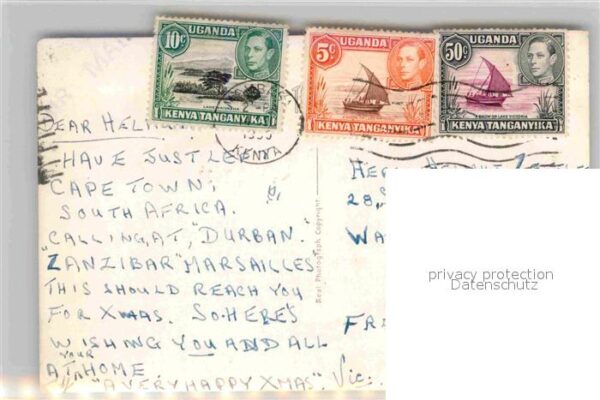 10c UGANDA
KENYA TANGANYIKA
5c UGANDA
KENYA TANGANYIKA
50c UGANDA
KENYA TANGANYIKA
KENYA
DEAR
HAVE JUST LEFT
CAPE TOWN,
SOUTH AFRICA.
CALLING, AT, "DURBAN.
"ZANZIBAR" MARSAILLES"
THIS SHOULD REACH YOU
FOR XMAS. SO HERE'S
WISHING YOU AND ALL
AT YOUR HOME
"A VERY HAPPY XMAS". Vic.
Real Photograph Copyright
28,
privacy protection
Datenschutz